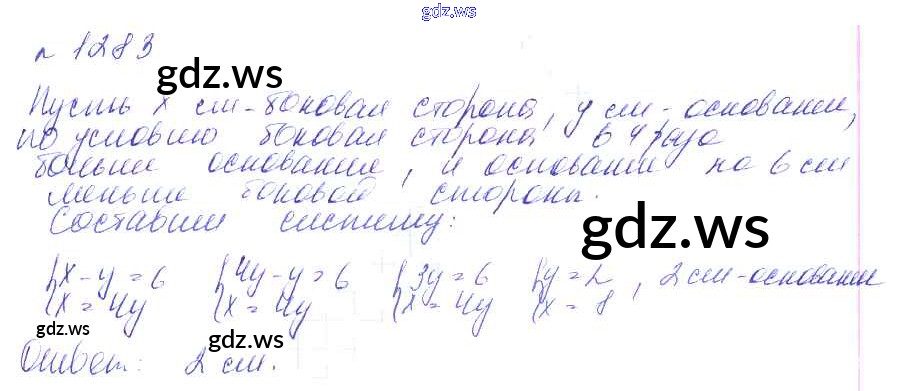 gdz.ws
№ 1283
gdz.ws
Пусть x см - боковая сторона, y см - основание,
по условию боковая сторона в 4 раза
больше основание, и основание на 6 см
меньше боковой стороны.
Составим систему:
gdz.ws
{x - y = 6 {4y - y = 6 {3y = 6 {y = 2 , 2 см - основание
{x = 4y {x = 4y {x = 4y {x = 8
gdz.ws gdz.ws gdz.ws
Ответ: 2 см.